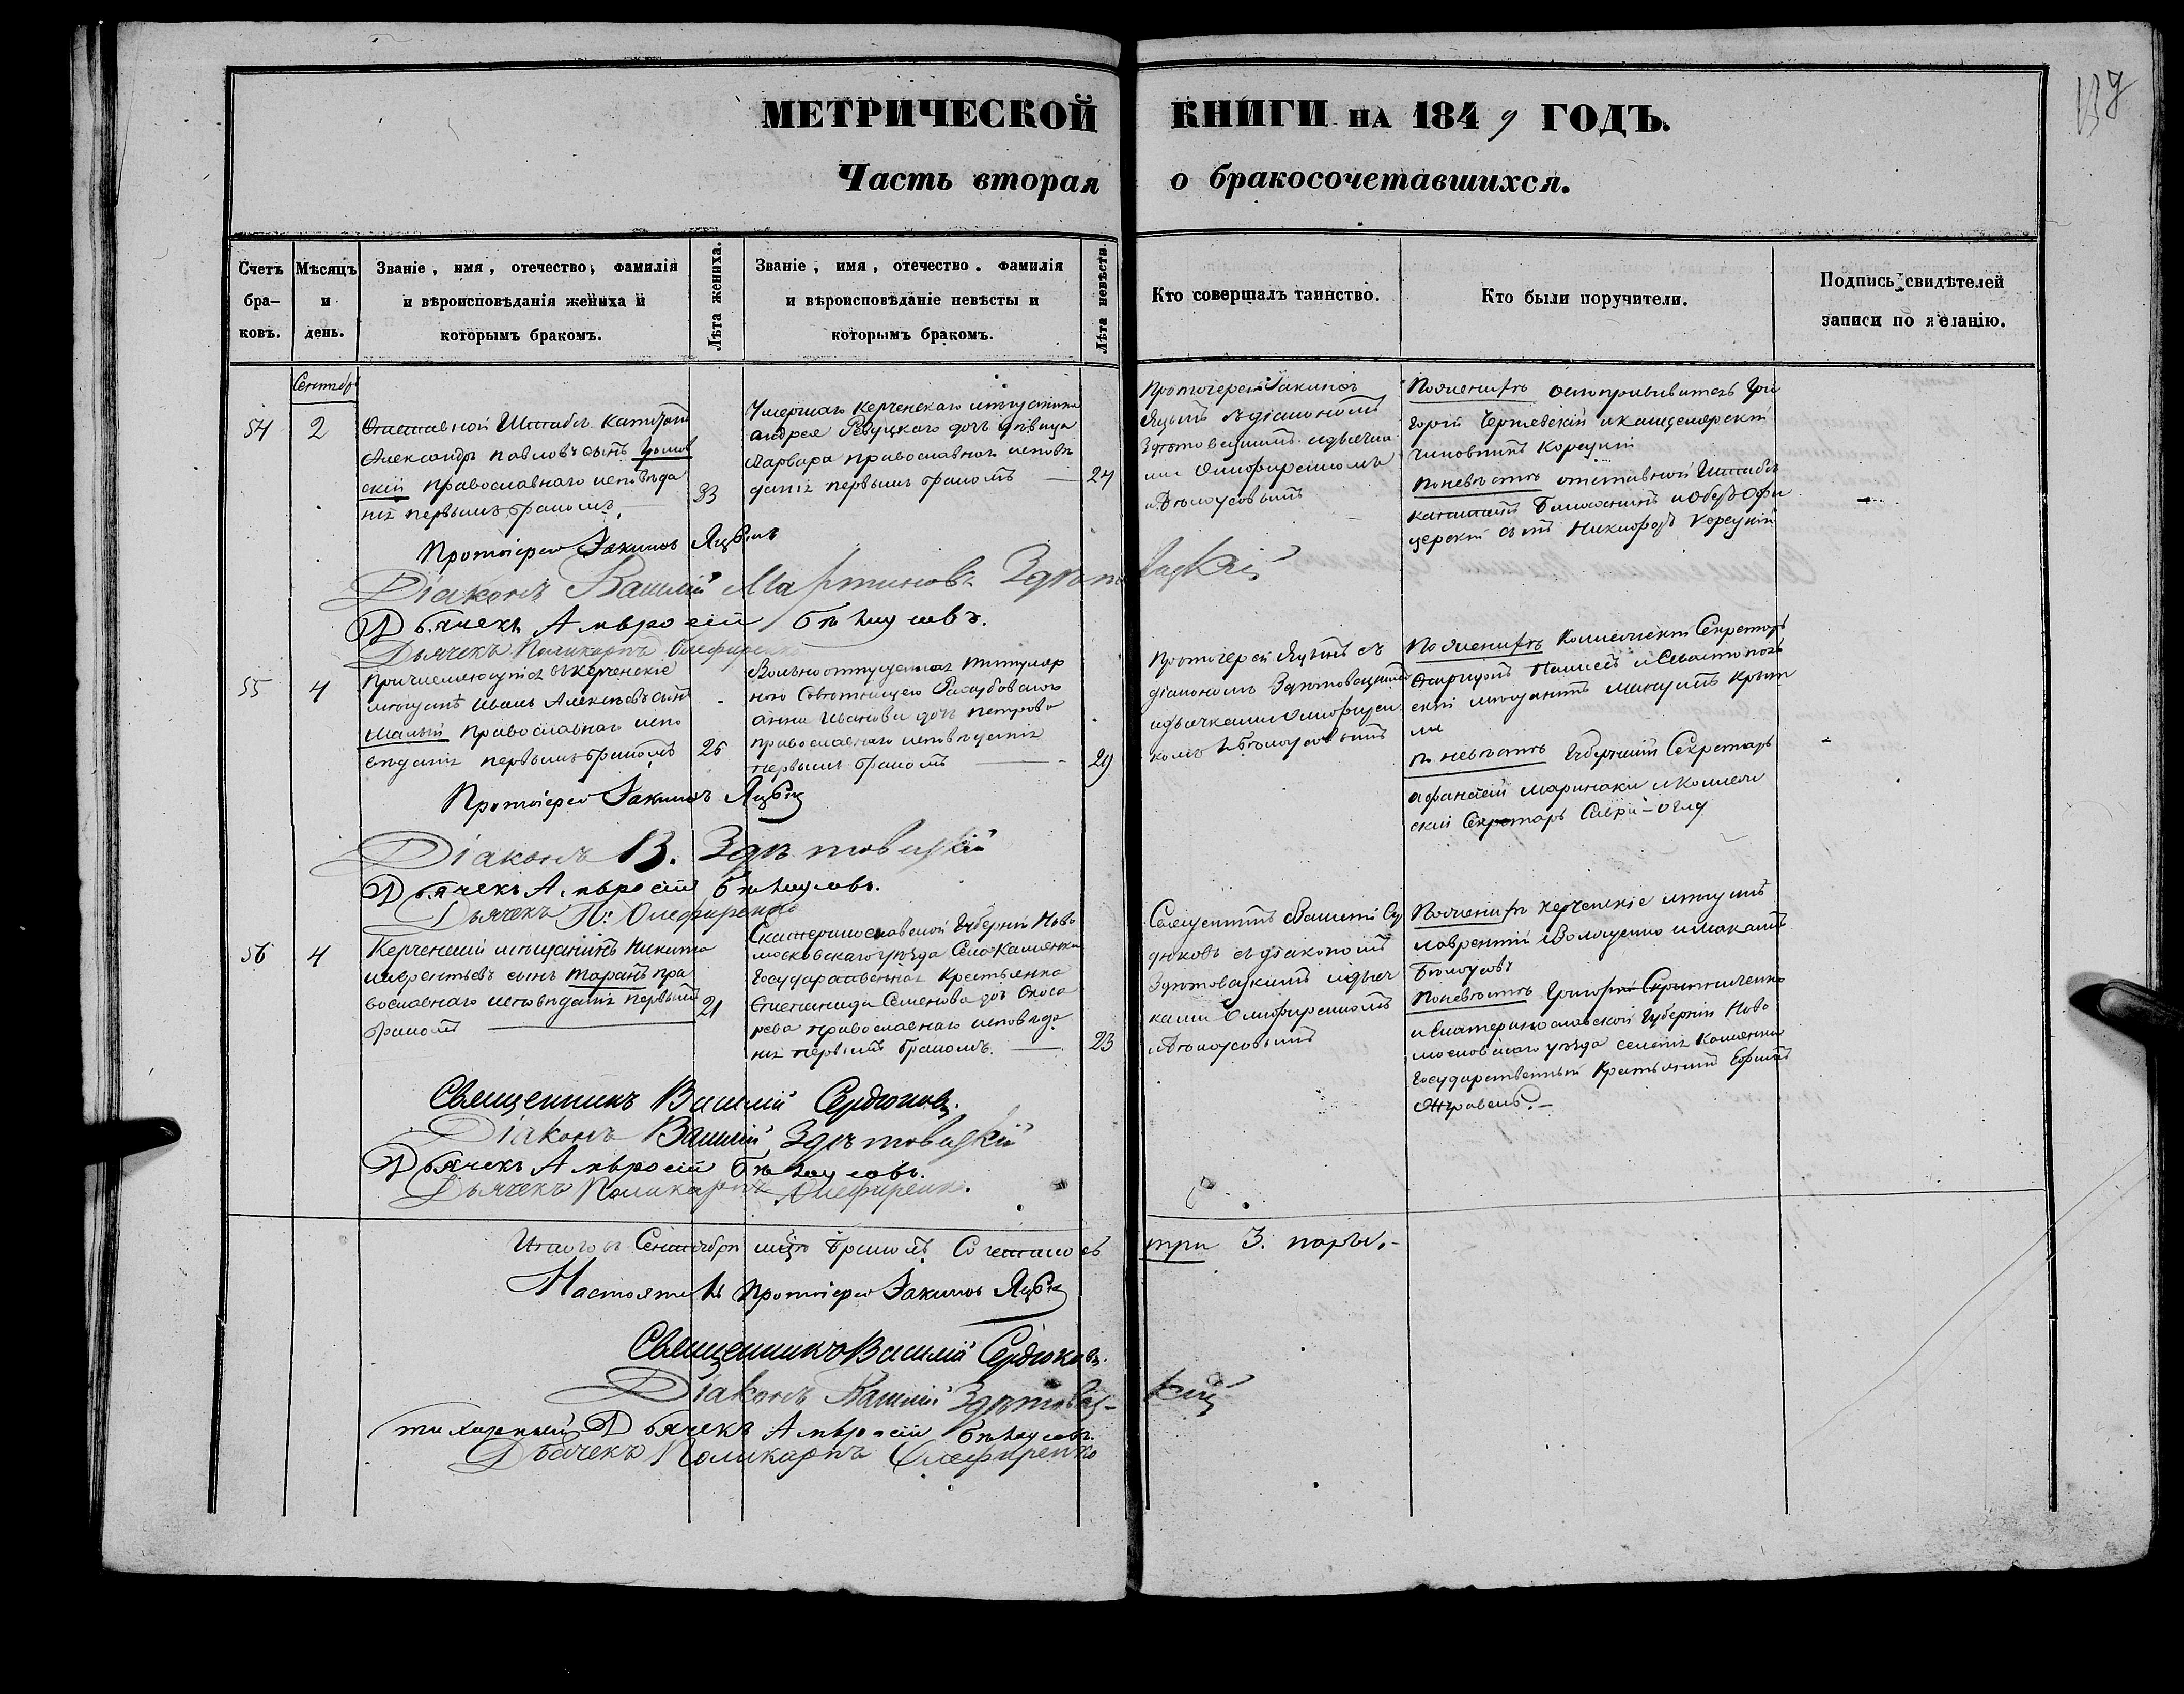 МЕТРИЧЕСКОЙ КНИГИ НА 1849 ГОДЪ.
Часть вторая о бракосочетавшихся.
137
Счетъ бра-ковъ.
Мѣсяцъ и день.
Званіе, имя, отечество, фамилія
и вѣроисповѣданія жениха и
которымъ бракомъ.
Лѣта жениха.
Званіе, имя, отечество. фамилія
и вѣроисповѣданіе невѣсты и
которымъ бракомъ.
Лѣта невѣсти.
Кто совершалъ таинство.
Кто были поручители.
Подпись свидѣтелей
записи по желанію.
Сентябр
54
2
Отставной Штабсъ Капитанъ
Александръ Павловъ сынъ
скій православнаго исповѣда
нія первымъ бракомъ
33
Умершаго Керченскаго мещанина
Андрея Ревуцкаго дочь дѣвица
Варвара православнаго исповѣ
данія первымъ бракомъ
24
Протоіерей Іакинѳъ
Яцынъ съ діакономъ
Здѣтовецкимъ и дьячка
ми Олифиренкомъ
и Бѣлоусовымъ
По женихѣ оспопрививатель Гри
горій и канцелярскій
чиновникъ Корецкій
По невѣстѣ отставной Штабсъ
Капитанъ и Оберъ Офи
церскій сынъ Никифоръ Корецкій
Протоіерей Іакинѳъ Яцынъ
Діаконъ Василій Мартиновъ Здѣтовецкій
Дьячекъ Амвросій Бѣлоусовъ.
Дьячекъ Поликарпъ Олефиренко
55
4
Причисляющійся въ Керченскіе
мещане Иванъ Алексѣевъ сынъ
Малый православнаго испо
вѣданія первымъ бракомъ
26
Вольноотпущенная Титуляр
ною Совѣтницею
Анна Иванова дочь Петрова
православнаго исповѣданія
первымъ бракомъ
29
Протоіерей Яцынъ съ
діакономъ Здѣтовецкимъ
и дьячками Олифирен
комъ и Бѣлоусовымъ
По женихѣ Коллежскій Секретарь
и Севастополь
скій мещанинъ
По невѣстѣ Губернскій Секретарь
Афанасій Маринаки и Коллеж
скій Секретарь
Протоіерей Іакинѳъ Яцынъ
Діаконъ В. Здѣтовецкій
Дьячекъ Амвросій Бѣлоусовъ.
Дьячекъ П: Олефиренко
56
4
Керченскій мещанинъ Никита
Лаврентьевъ сынъ Таранъ пра
вославнаго исповѣданія первымъ
бракомъ
21
Екатеринославской Губерніи Ново
московскаго уѣзда Села Каменки
Государственная Крестьянка
Степанида Семенова дочь
православнаго исповѣда
нія первымъ бракомъ.
23
Священникъ Василій Сер
дюковъ съ діакономъ
Здѣтовецкимъ и дьяч
ками Олифиренкомъ
и Бѣлоусовымъ
По женихѣ Керченскіе мещане
Лаврентій и
Бѣлоусовъ
По невѣстѣ Григорій
и Екатеринославской Губерніи Ново
московскаго уѣзда селенія Каменки
Государственный Крестьянинъ
Журавель.
Священникъ Василій Сердюковъ.
Діаконъ Василій Здѣтовецкій
Дьячекъ Амвросій Бѣлоусовъ.
Дьячекъ Поликарпъ Олефиренк.
Итого въ Сентябрѣ мцѣ бракомъ Сочеталось три 3. пары.
Настоятель Протоіерей Іакинѳъ Яцынъ
Священникъ Василій Сердюковъ.
Діаконъ Василій Здѣтовец-кій
Дьячекъ Амвросій Бѣлоусовъ.
Дьячекъ Поликарпъ Олефиренко